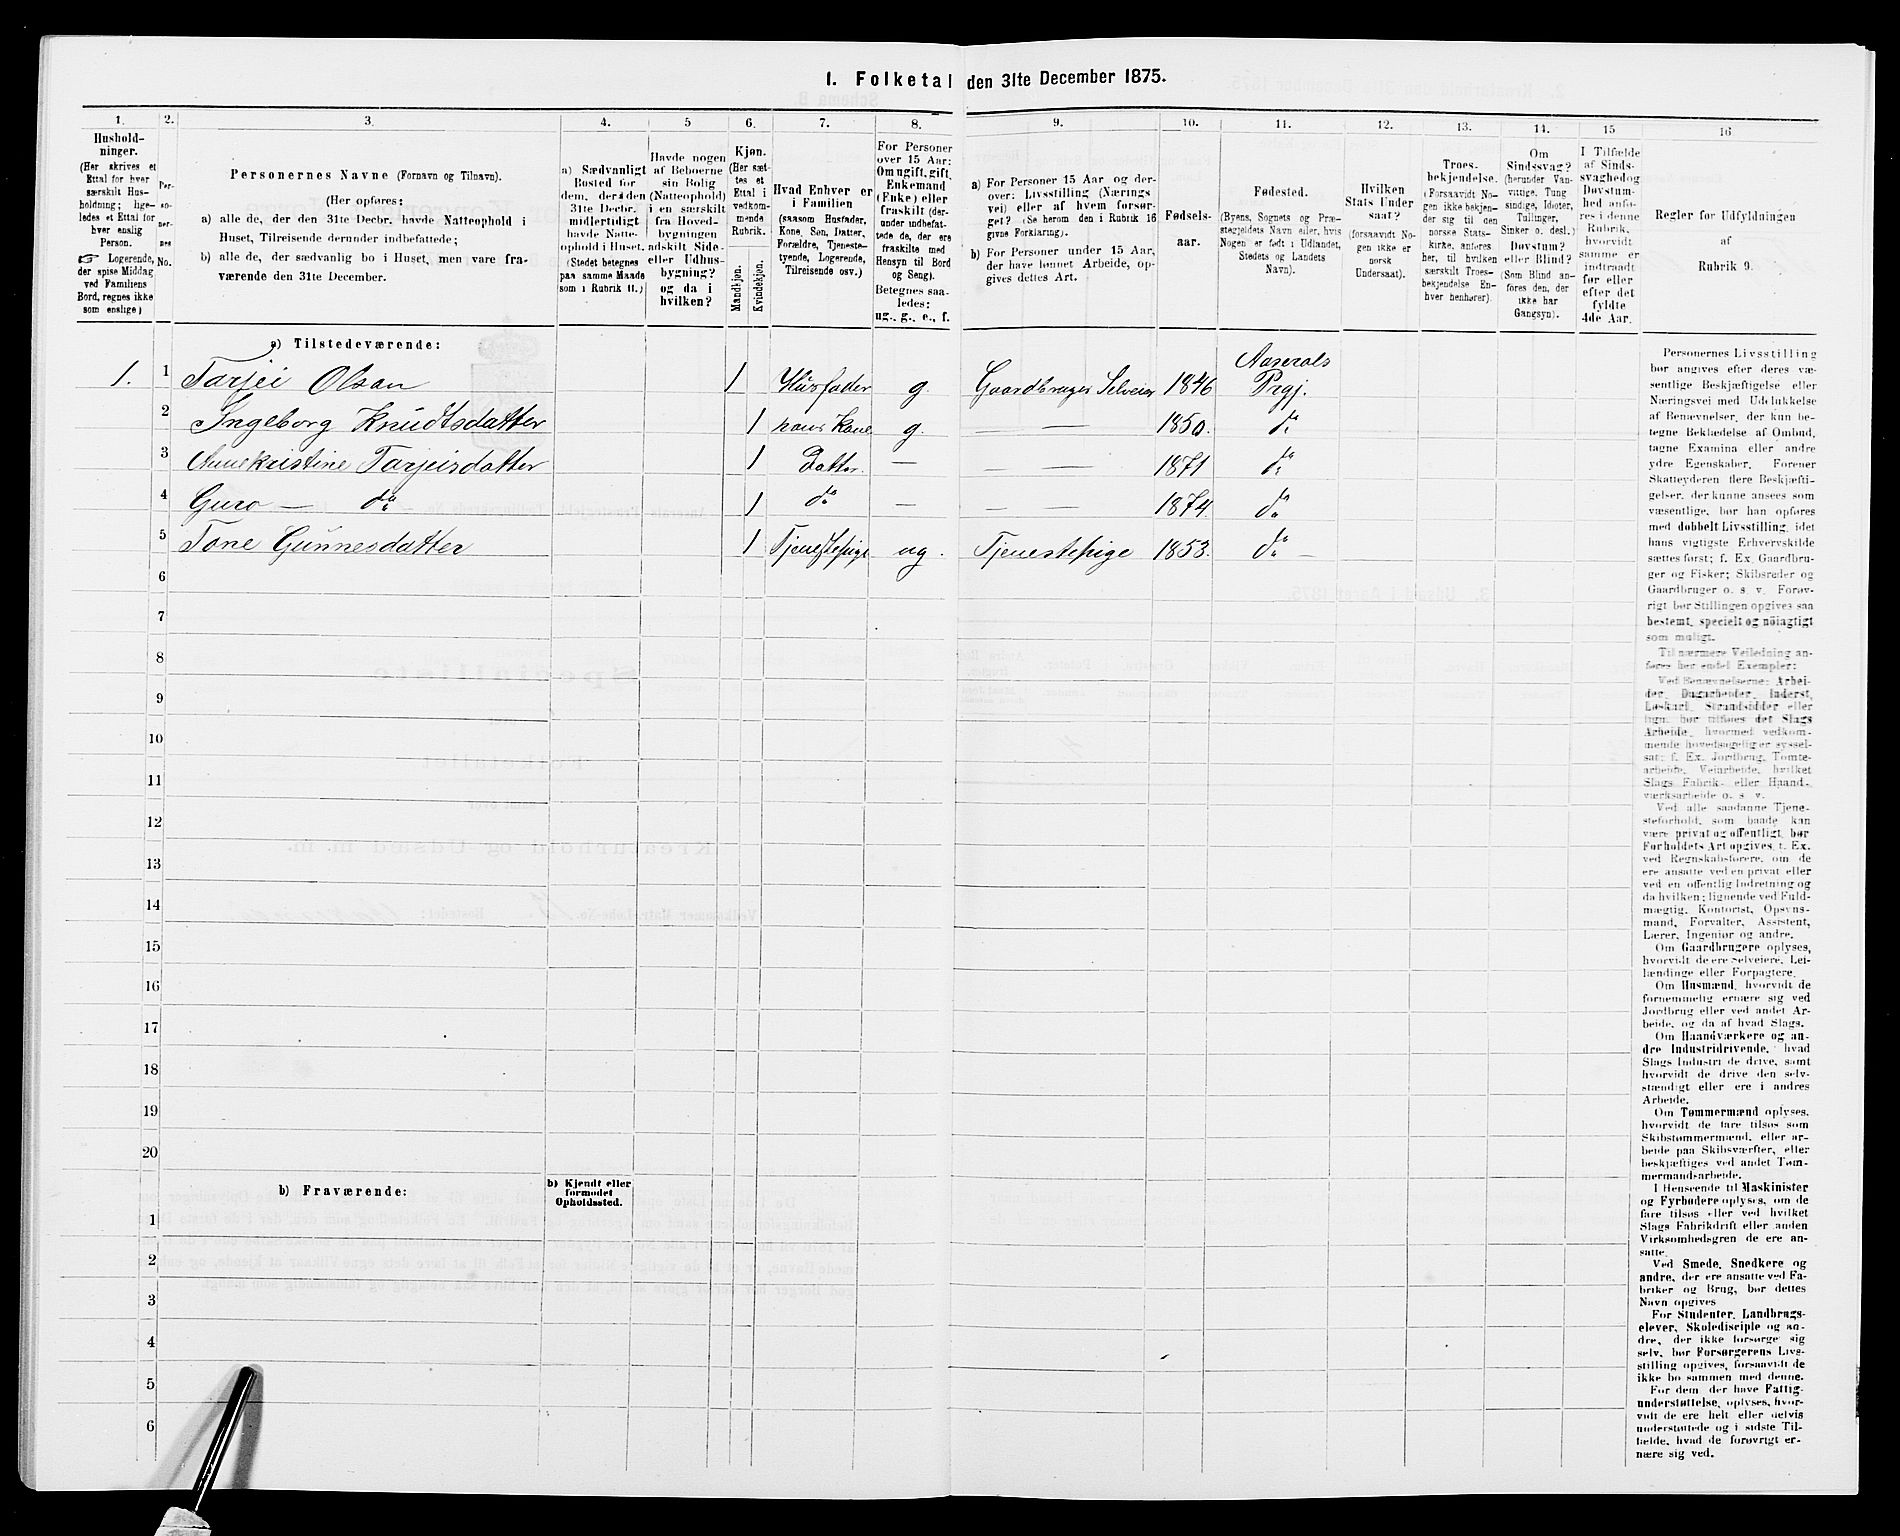 1. Folketal den 31te December 1875.
1. 2. 3. 4. 5 6. 7. 8. 9. 10. 11. 12. 13. 14. 15 16
Hushold-
ninger.
(Her skrives et
Ettal for hver
særskilt Hus-
holdning; lige-
ledes et Ettal for
hver enslig
Person.
☞ Logerende,
der spise Middag
ved Familiens
Bord, regnes ikke
som enslige)
Per-
so-
ner-
nes
No.
Personernes Navne (Fornavn og Tilnavn).
(Her opføres:
a) alle de, der den 31te Decbr. havde Natteophold i
Huset, Tilreisende derunder indbefattede;
b) alle de, der sædvanlig bo i Huset, men vare fra-
værende den 31te December.
a) Sædvanligt
Bosted for
dem, der den
31te Decbr.
midlertidigt
havde Natte-
ophold i Huset.
(Stedet betegnes
paa samme Maade
som i Rubrik II.)
Havde nogen
af Beboerne
sin Bolig
(Natteophold)
i en særskilt
fra Hoved-
bygningen
adskilt Side-
eller Udhus-
bygning?
og da i
hvilken?
Kjøn.
(Her sæt-
tes et
Ettal i
vedkom-
mende
Rubrik.
Mandkjøn.
Kvindekjøn.
Hvad Enhver er
i Familien
(saasom Husfader,
Kone, Søn, Datter,
Forældre, Tjeneste-
tyende, Logerende,
Tilreisende osv.)
For Personer
over 15 Aar:
Om ugift, gift,
Enkemand
(Enke) eller
fraskilt (der-
under indbefat-
tede de, der ere
fraskilte med
Hensyn til Bord
og Seng).
Betegnes saa-
ledes:
ug., g., e., f.
a) For Personer 15 Aar og der-
over: Livsstilling (Nærings
vei) eller af hvem forsør-
get? (Se herom den i Rubrik 16
givne Forklaring).
b) For Personer under 15 Aar,
der have lønnet Arbeide, op-
gives dettes Art.
Fødsels-
aar.
Fødested.
(Byens, Sognets og Præ-
stegjeldets Navn eller, hvis
Nogen er født i Udlandet,
Stedets og Landets
Navn).
Hvilken
Stats Under
saat?
(forsaavidt No-
gen ikke er
norsk
Undersaat).
Troes-
bekjendelse.
(Forsaavidt No-
gen ikke bekjen-
der sig til den
norske Stats-
kirke, anføres
her, til hvilken
særskilt Troes-
bekjendelse En-
hver henhører).
Om
Sindssvag?
(herunder Van-
vittige, Tung
sindige, Idioter,
Tullinger,
Sinker o. desl.)
Døvstum?
eller Blind?
(Som Blind an-
føres den, der
ikke har
Gangsyn).
I Tilfælde
af Sinds-
svaghed og
Døvstum-
hed anfø-
res i denne
Rubrik,
hvorvidt
samme er
indtraadt
før eller
efter det
fyldte
4de Aar.
Regler for Udfyldningen
af
Rubrik 9.
a) Tilstedeværende:
1. 1 Tarjei Olsen 1 Husfader g. Gaardbruger Selveier 1846 Aaserals
Prgj.
2 Ingeborg Knudtsdatter 1 hans Kone g. — — 1850. do
3 Annekristine Tarjeisdatter 1 Datter. — — — 1871 do
4 Guro — do 1 do — — — 1874. do
5 Tone Gunnesdatter 1 Tjenestepige ug. Tjenestepige 1853. do —
6
7
8
9
10
11
12
13
14
15
16
17
18
19
20
b) Fraværende:
b) Kjendt eller
formodet
Opholdssted.
1
2
3
4
5
6
Personernes Livsstilling
bør angives efter deres væ-
sentlige Beskjæftigelse eller
Næringsvei med Udelukkelse
af Benævnelser, der kun be-
tegne Beklædelse af Ombud,
tagne Examina eller andre
ydre Egenskaber. Forener
Skatteyderen flere Beskjæfti-
gelser, der kunne ansees som
væsentlige, bør han opføres
med dobbelt Livsstilling, idet
hans vigtigste Erhvervskilde
sættes først; f. Ex. Gaardbru-
ger og Fisker; Skibsreder og
Gaardbruger o. s. v. Forøv-
rigt bør Stillingen opgives saa
bestemt, specielt og nöiagtigt
som muligt.
Til nærmere Veiledning an-
føres her endel Exempler:
Ved Benævnelserne: Arbei-
der, Dagarbeider, Inderst,
Løskarl, Strandsidder eller
lign. bør tilføies det Slags
Arbeide, hvormed vedkom-
mende hovedsagelig er syssel-
sat; f. Ex. Jordbrug, Tomte-
arbeide, Veiarbeide, hvilket
Slags Fabrik- eller Haand-
værksarbeide o. s. v.
Ved alle saadanne Tjene-
steforhold, som baade kan
være privat og offentligt, bør
Forholdets Art opgives, t. Ex.
ved Regnskabsførere, om de
ere ansatte ved en privat eller
ved en offentlig Indretning og
da hvilken; lignende ved Fuld-
mægtig, Kontorist, Opsyns-
mand, Forvalter, Assistent,
Lærer, Ingeniør og andre.
Om Gaardbrugere oplyses,
hvorvidt de ere Selveiere, Lei-
lændinge eller Forpagtere.
Om Husmænd, hvorvidt de
fornemmelig ernære sig ved
Jordbrug eller ved andet Ar-
beide, og da af hvad Slags.
Om Haandværkere og an-
dre Industridrivende, hvad
Slags Industri de drive, samt
hvorvidt de drive den selv-
stændigt eller ere i andres
Arbeide.
Om Tømmermænd oplyses,
hvorvidt de fare tilsøs som
Skibstømmermænd, eller ar-
beide paa Skibsværfter, eller
beskjæftiges ved andet Tøm-
mermandsarbeide.
I Henseende til Maskinister
og Fyrbødere oplyses, om de
fare tilsøs eller ved hvilket
Slags Fabrikdrift eller anden
Virksomhedsgren de ere an-
satte.
Ved Smede, Snedkere og
andre, der ere ansatte ved Fa-
briker og Brug, bør dettes
Navn opgives
For Studenter, Landbrugs-
elever, Skoledisciple og an-
dre, der ikke forsørge sig
selv, bør Forsørgerens Livs-
stilling opgives, forsaavidt de
ikke bo sammen med denne.
For dem der have Fattig-
understøttelse, oplyses, hvor-
vidt de ere helt eller delvis
understøttede og i sidste Til-
fælde, hvad de forøvrigt er-
nære sig ved.